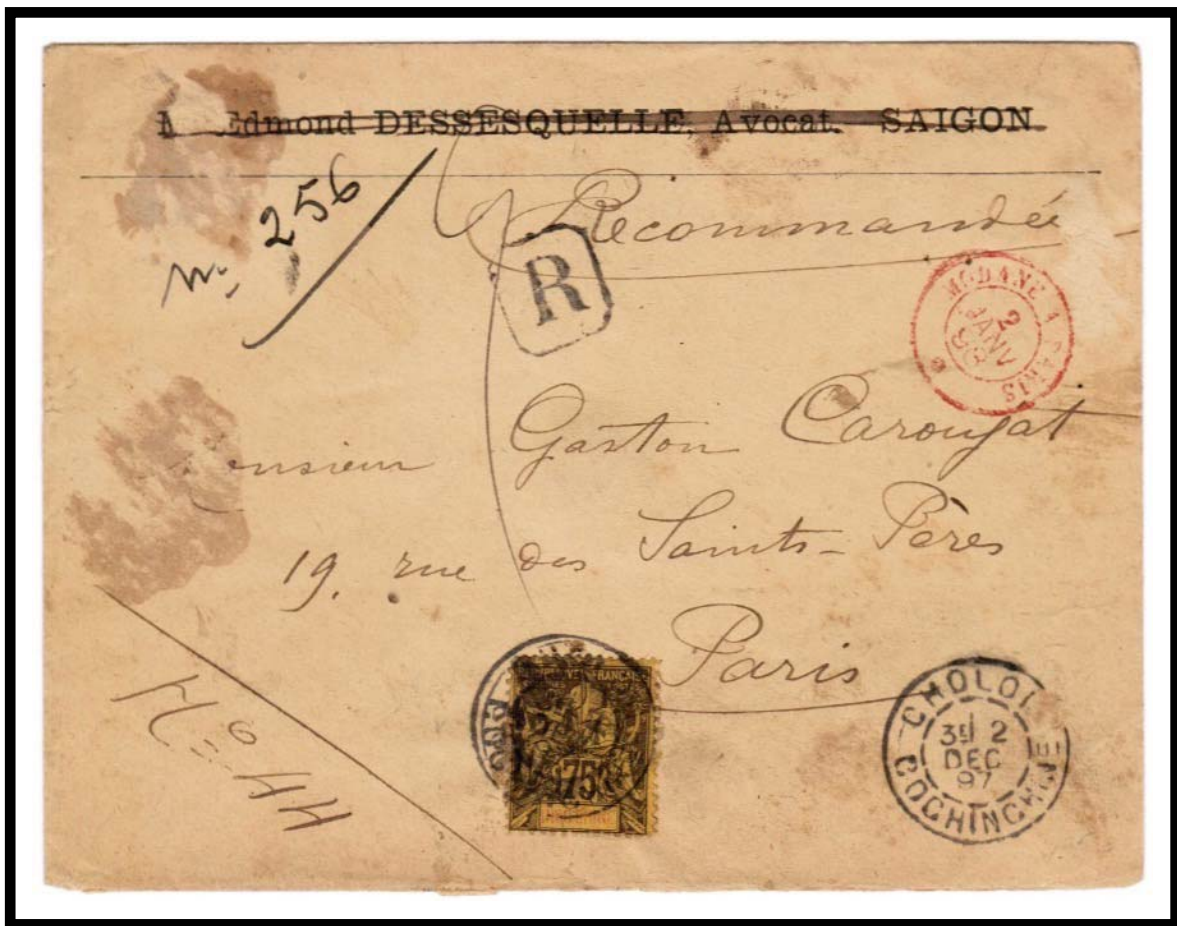 Edmond DESSESQUELLE, Avocat. SAIGON
N: 256
Recommandée
R
MODANE A PARIS
2
JANV
98
Monsieur Gaston Carougat
19, rue des Saints-Pères
Paris
75
FRANÇAI
CHOLO
3E 2
DEC
97
COCHINCHINE
No 44